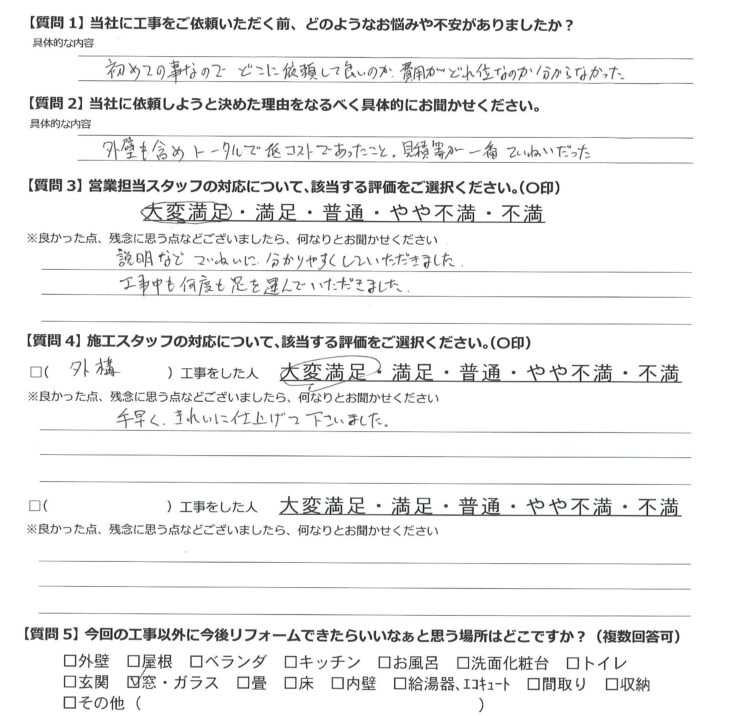 【質問1】当社に工事をご依頼いただく前、どのようなお悩みや不安がありましたか？
具体的な内容
初めての事なので どこに依頼して良いのか、費用がどれ位なのか分からなかった
【質問2】当社に依頼しようと決めた理由をなるべく具体的にお聞かせください。
具体的な内容
外壁も含めトータルで低コストであったこと。見積等が一番ていねいだった
【質問3】営業担当スタッフの対応について、該当する評価をご選択ください。（〇印）
大変満足・満足・普通・やや不満・不満
※良かった点、残念に思う点などございましたら、何なりとお聞かせください
説明など ていねいに 分かりやすくしていただきました.
工事中も何度も足を運んでいただきました.
【質問4】施工スタッフの対応について、該当する評価をご選択ください。（〇印）
□（ 外構 ）工事をした人 大変満足・満足・普通・やや不満・不満
※良かった点、残念に思う点などございましたら、何なりとお聞かせください
手早く、きれいに仕上げて下さいました。
□（ ）工事をした人 大変満足・満足・普通・やや不満・不満
※良かった点、残念に思う点などございましたら、何なりとお聞かせください
【質問5】今回の工事以外に今後リフォームできたらいいなぁと思う場所はどこですか？（複数回答可）
□外壁 □屋根 □ベランダ □キッチン □お風呂 □洗面化粧台 □トイレ
□玄関 ☑窓・ガラス □畳 □床 □内壁 □給湯器、エコキュート □間取り □収納
□その他（ ）